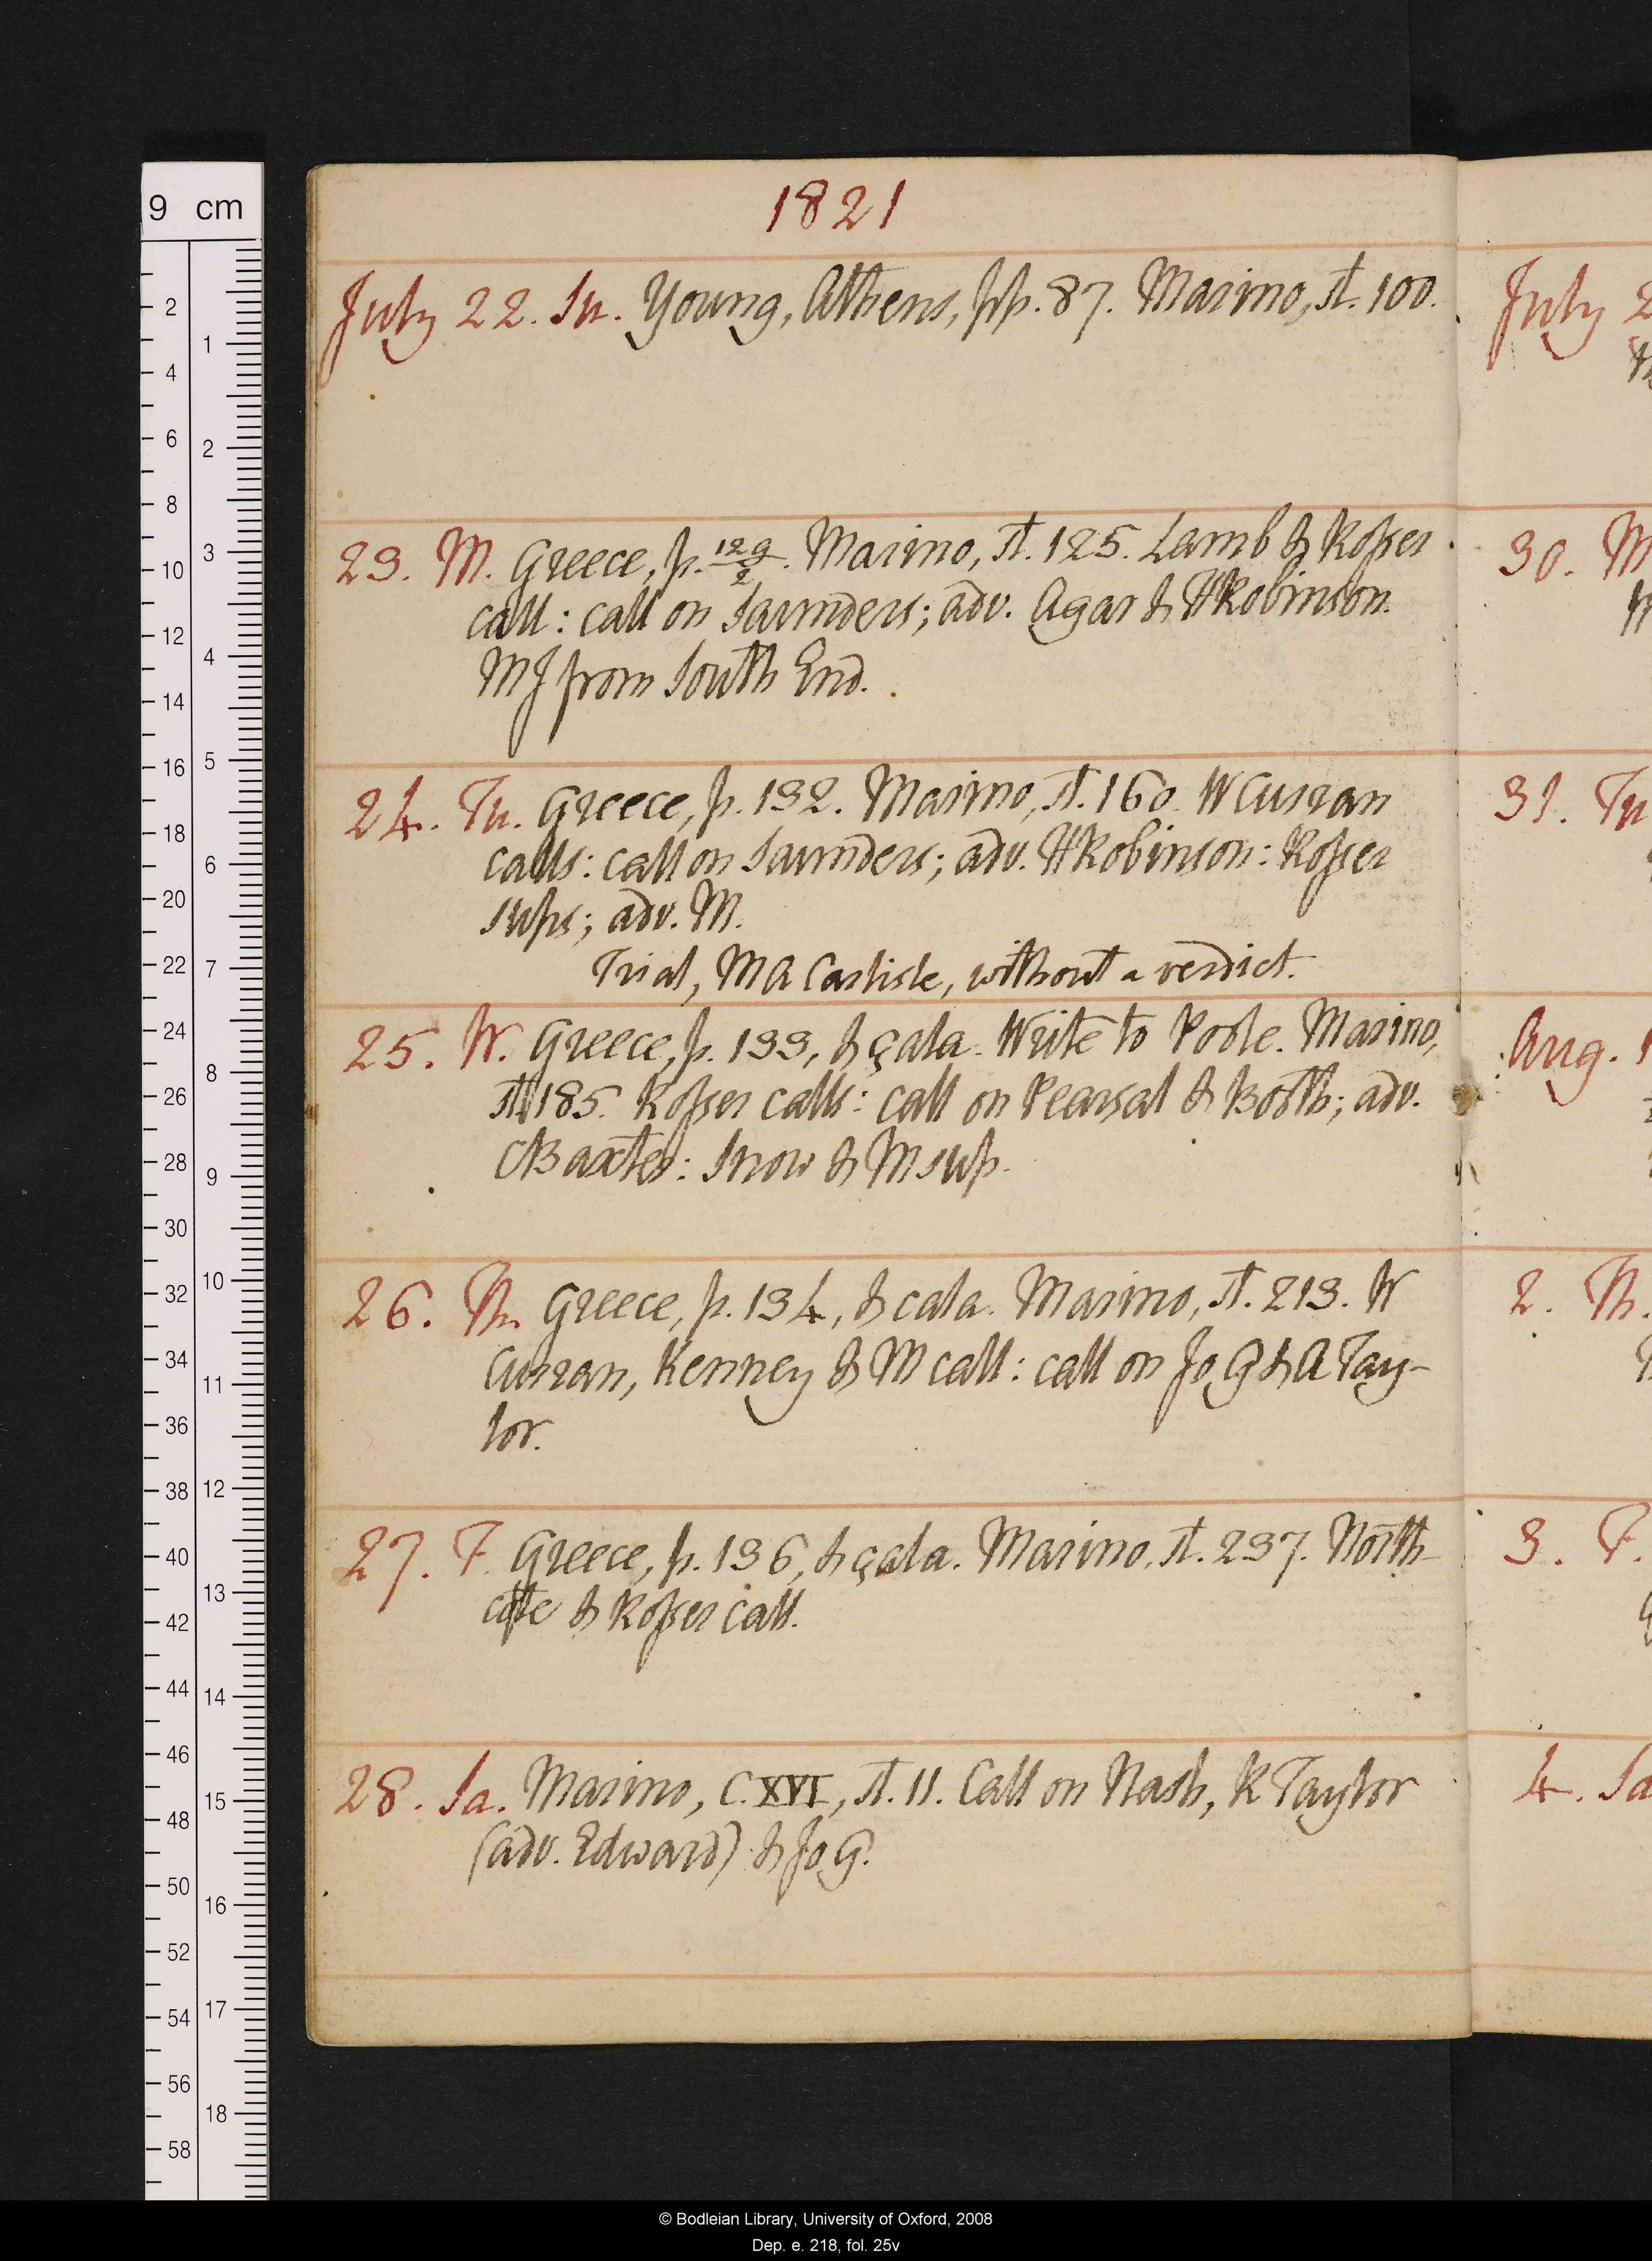 1821
July 22. Su. Young, Athens, pp. 87. Marino, st. 100.
23. M. Greece, p. 129/2. Marino, st. 125. Lamb & Rosser
call: call on Saunders; adv. Agar & HRobinson.
MJ from South End.
24. Tu. Greece, p. 132. Marino, st. 160. W Curran
calls: call on Saunders; adv. HRobinson: Rosser
sups; adv. M.
Trial, MA Carlisle, without a verdict.
25. W. Greece, p. 133, & çala. Write to Poole. Marino,
st. 185. Rosser calls: call on Pearsal & Booth; adv.
CBaxter: Snow & M sup.
26. Th. Greece, p. 134, & cala. Marino, st. 213. W
Curran, Kenney & M call: call on Jo G & A Tay-
lor.
27. F. Greece, p. 136, & çala. Marino, st. 237. North-
cote & Rosser call.
28. Sa. Marino, C. XVI, st. 11. Call on Nash, R Taylor
(adv. Edward) & Jo G.
July 2
30. M
31. Tu
Aug. 1
2. Th.
3. F.
4. Sa
9 cm
2
4
6
8
10
12
14
16
18
20
22
24
26
28
30
32
34
36
38
40
42
44
46
48
50
52
54
56
58
1
2
3
4
5
6
7
8
9
10
11
12
13
14
15
16
17
18
© Bodleian Library, University of Oxford, 2008
Dep. e. 218, fol. 25v